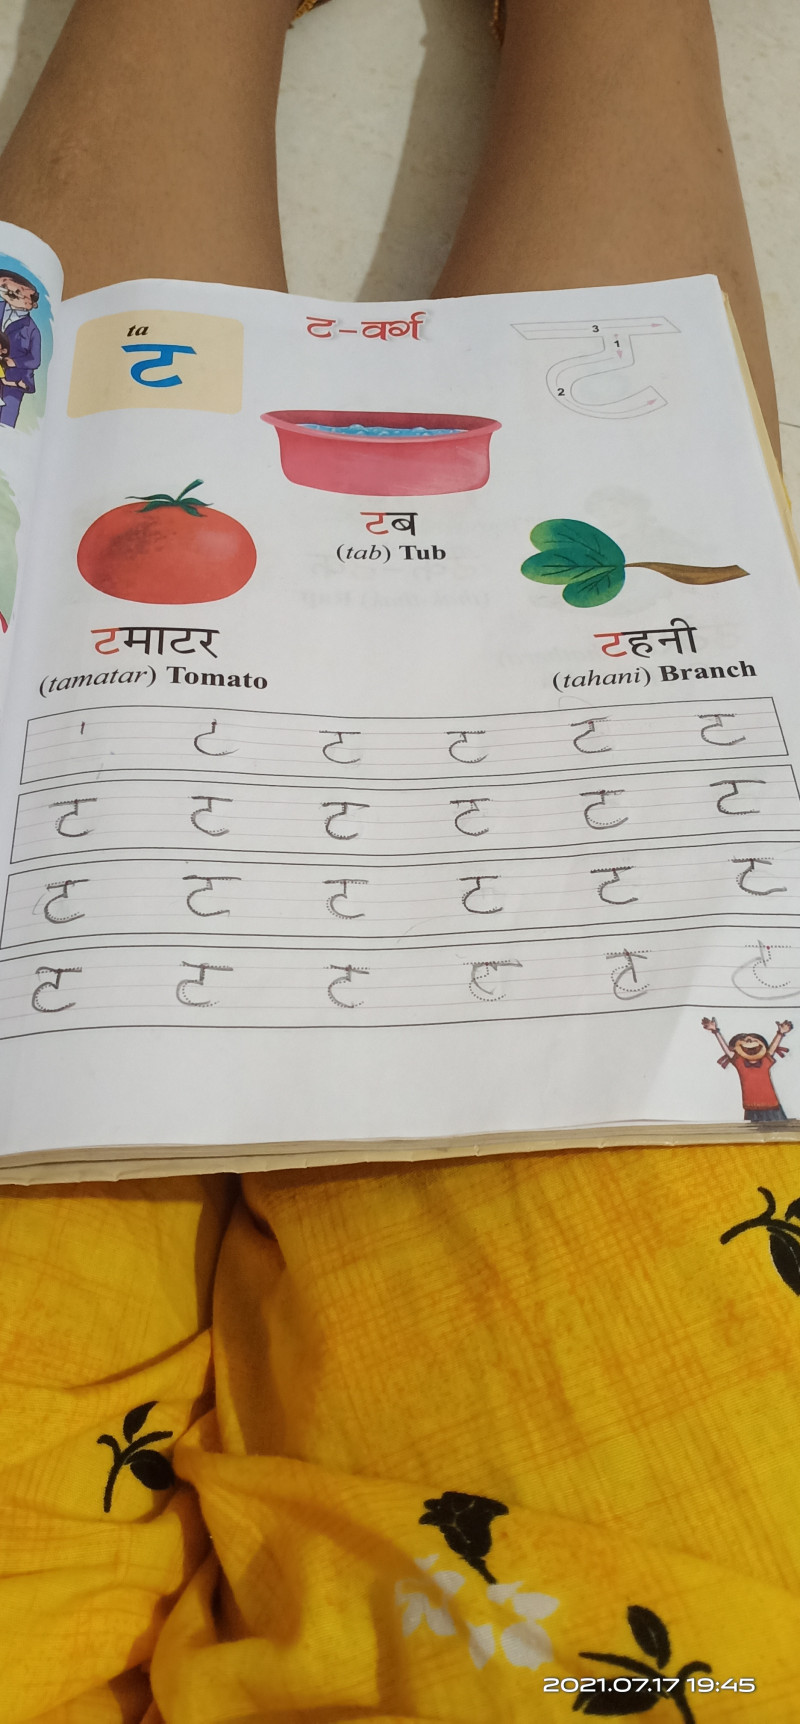 ta
ट
ट-वर्ग
3
1
2
टब
(tab) Tub
टमाटर
(tamatar) Tomato
टहनी
(tahani) Branch
ा ट ट ट ट ट
ट ट ट ट ट ट
ट ट ट ट ट ट
ट ट ट ट ट ट
2021.07.17 19:45